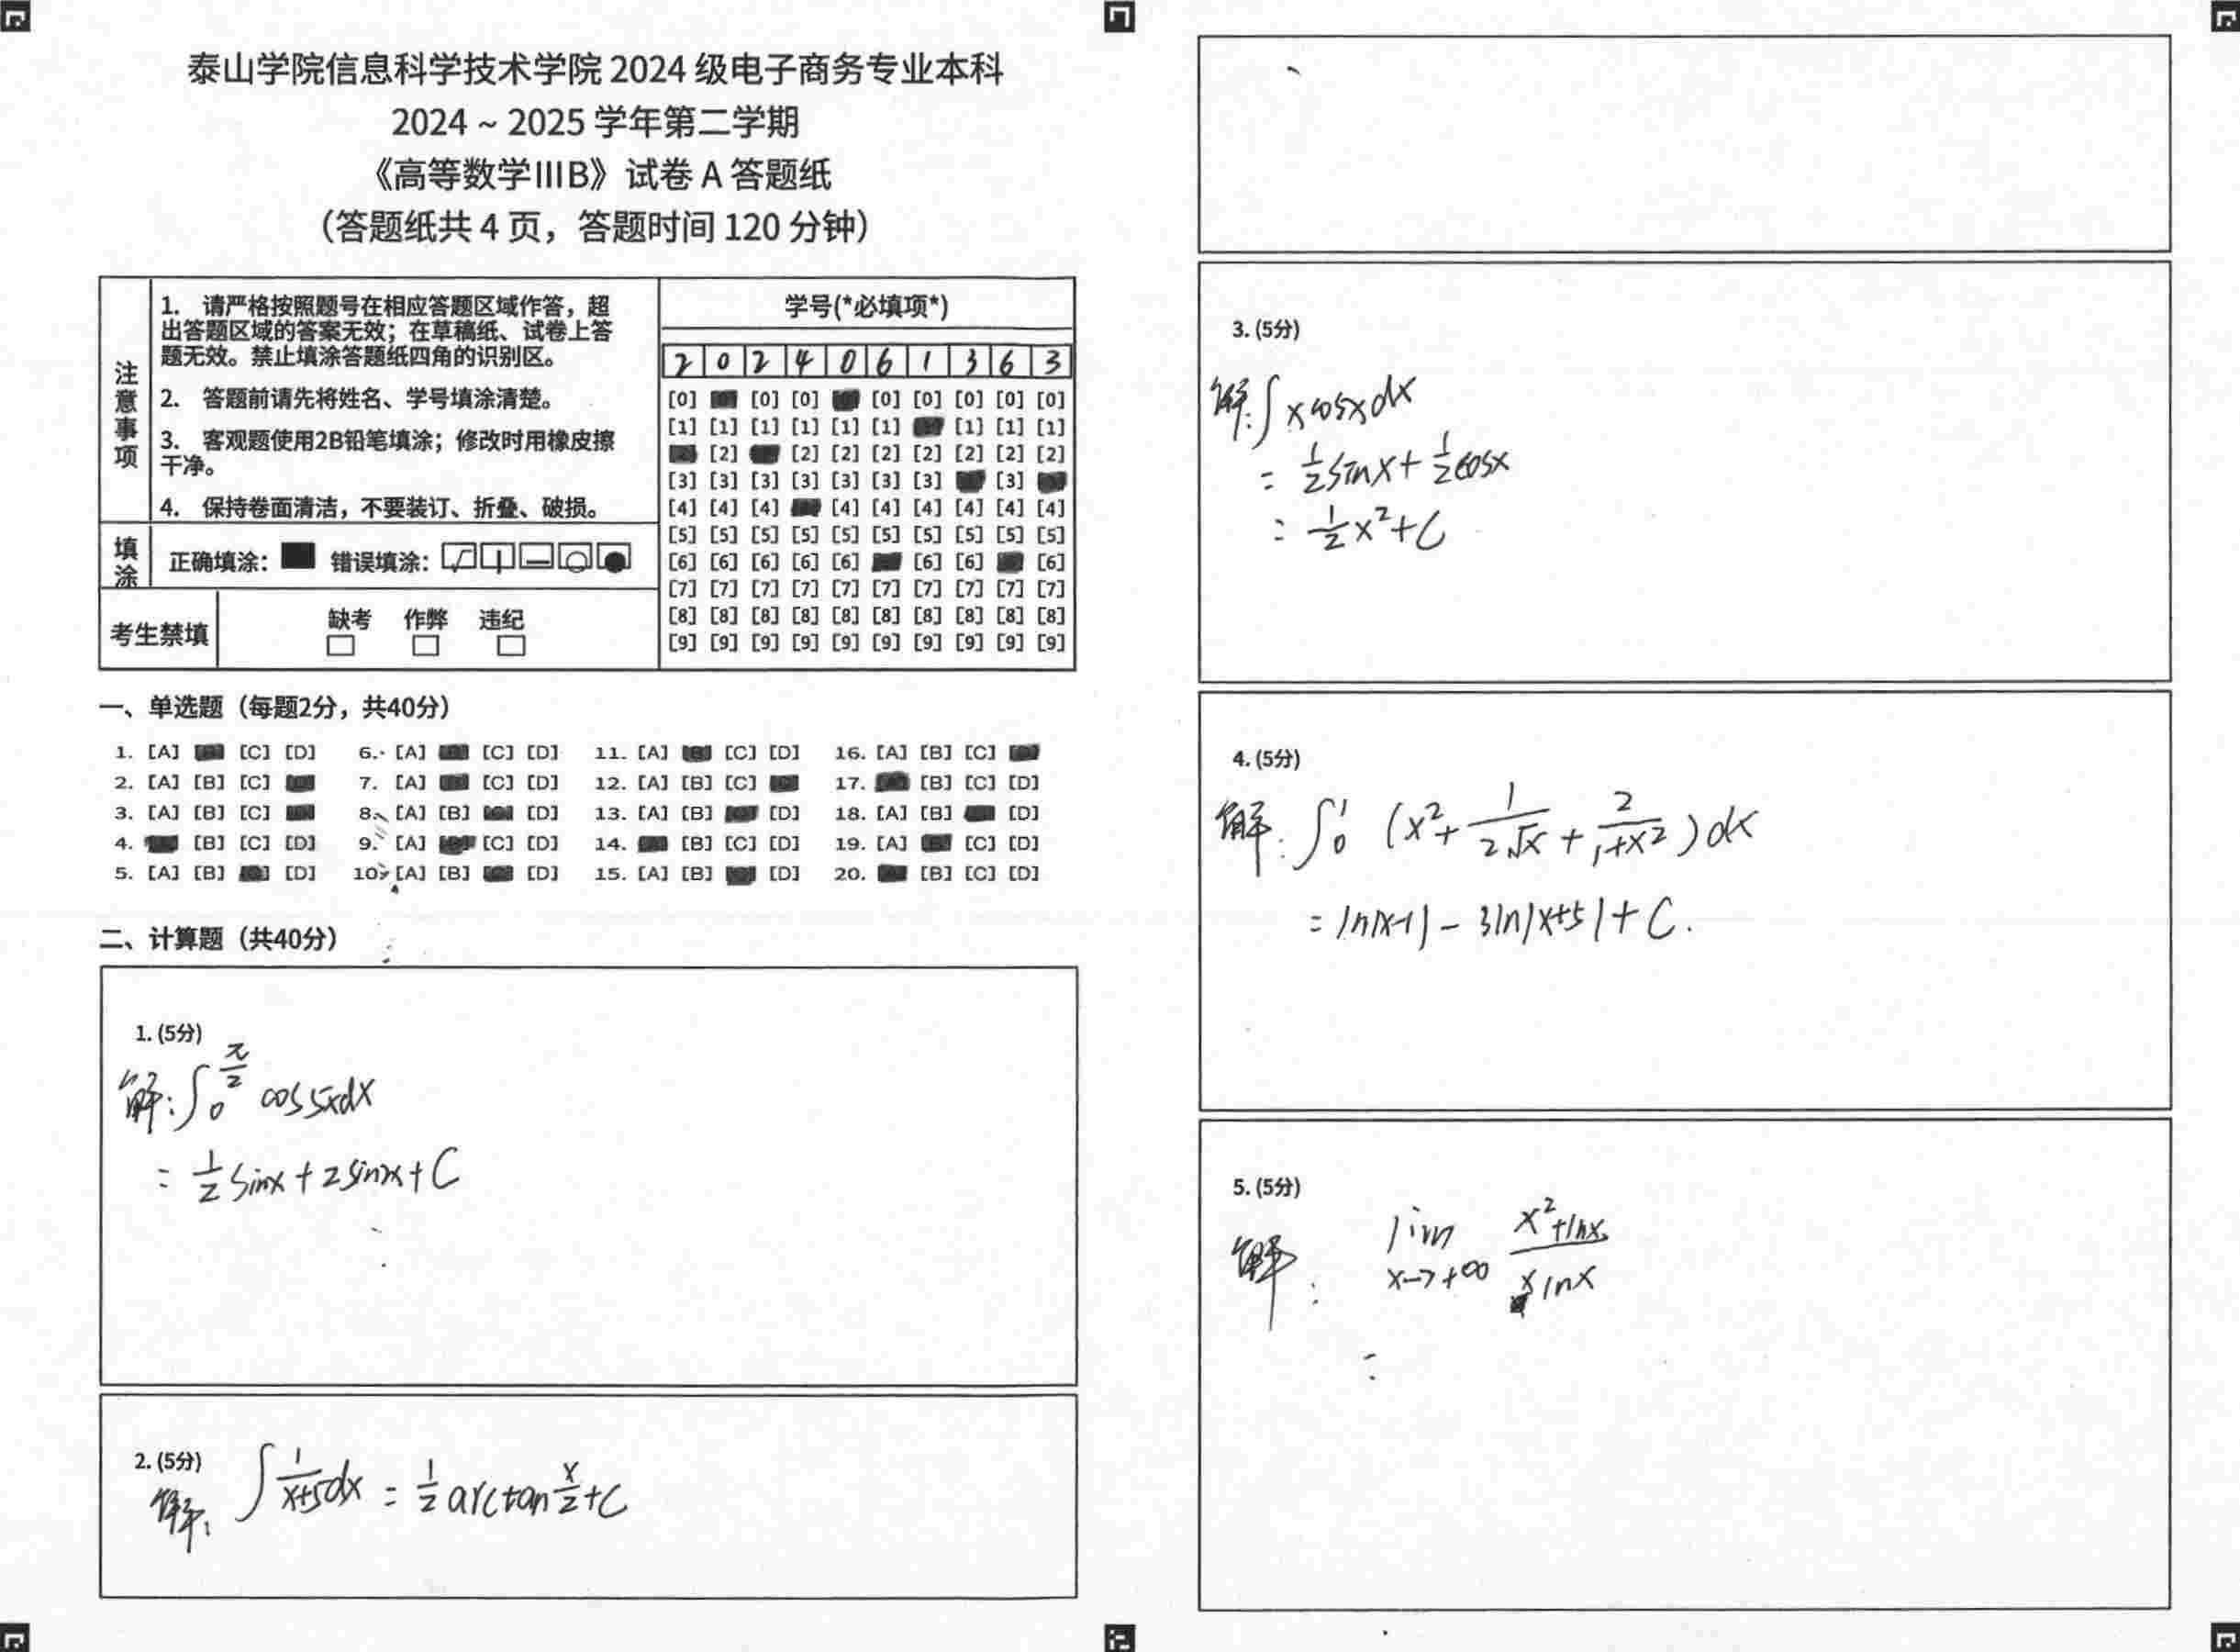 泰山学院信息科学技术学院 2024 级电子商务专业本科
2024 ~ 2025 学年第二学期
《高等数学ⅢB》试卷 A 答题纸
（答题纸共 4 页，答题时间 120 分钟）
注意事项
1. 请严格按照题号在相应答题区域作答，超
出答题区域的答案无效；在草稿纸、试卷上答
题无效。禁止填涂答题纸四角的识别区。
2. 答题前请先将姓名、学号填涂清楚。
3. 客观题使用2B铅笔填涂；修改时用橡皮擦
干净。
4. 保持卷面清洁，不要装订、折叠、破损。
填涂 正确填涂： 错误填涂：
考生禁填 缺考 作弊 违纪
学号(*必填项*)
2 0 2 4 0 6 1 3 6 3
[0] [0] [0] [0] [0] [0] [0] [0]
[1] [1] [1] [1] [1] [1] [1] [1] [1]
[2] [2] [2] [2] [2] [2] [2] [2]
[3] [3] [3] [3] [3] [3] [3] [3]
[4] [4] [4] [4] [4] [4] [4] [4] [4]
[5] [5] [5] [5] [5] [5] [5] [5] [5] [5]
[6] [6] [6] [6] [6] [6] [6] [6]
[7] [7] [7] [7] [7] [7] [7] [7] [7] [7]
[8] [8] [8] [8] [8] [8] [8] [8] [8] [8]
[9] [9] [9] [9] [9] [9] [9] [9] [9] [9]
一、单选题（每题2分，共40分）
1. [A] [C] [D] 6. [A] [C] [D] 11. [A] [C] [D] 16. [A] [B] [C]
2. [A] [B] [C] 7. [A] [C] [D] 12. [A] [B] [C] 17. [B] [C] [D]
3. [A] [B] [C] 8. [A] [B] [D] 13. [A] [B] [D] 18. [A] [B] [D]
4. [B] [C] [D] 9. [A] [C] [D] 14. [B] [C] [D] 19. [A] [C] [D]
5. [A] [B] [D] 10. [A] [B] [D] 15. [A] [B] [D] 20. [B] [C] [D]
二、计算题（共40分）
1. (5分)
解: ∫₀^(π/2) cos5xdx
= 1/2 sinx + 2sin2x + C
2. (5分)
解: ∫ 1/(x+5) dx = 1/2 arctan x/2 + C
3. (5分)
解: ∫ x cosx dx
= 1/2 sinx + 1/2 cosx
= 1/2 x² + C
4. (5分)
解: ∫₀¹ (x² + 1/(2√x) + 2/(1+x²)) dx
= ln|x-1| - 3ln|x+5| + C.
5. (5分)
解: lim x→+∞ (x²+lnx)/(x lnx)
=